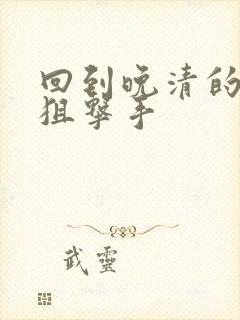 回到晚清的
狙擊手
武靈